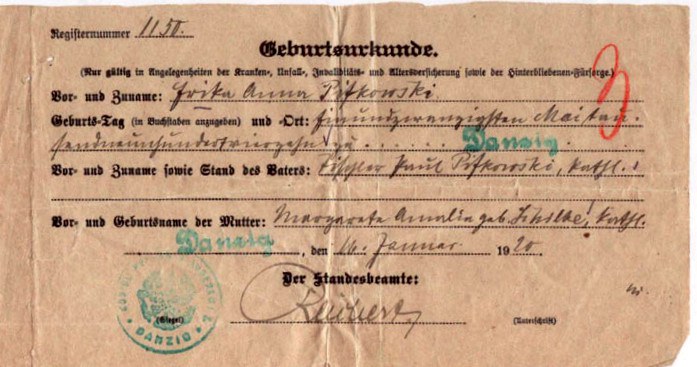 Registernummer 1150.
Geburtsurkunde.
(Nur gültig in Angelegenheiten der Kranken-, Unfall-, Invaliditäts- und Altersversicherung sowie der Hinterbliebenen-Fürsorge.)
3
Vor- und Zuname: Erika Anna Pifkowski
Geburts-Tag (in Buchstaben anzugeben) und -Ort: Einundzwanzigsten Mai tau-
sendneunhundertvierzehn zu Danzig
Vor- und Zuname sowie Stand des Vaters: Tischler Paul Pifkowski, kathl.
Vor- und Geburtsname der Mutter: Margarete Amalie geb. kathl.
Danzig, den 16. Januar 1920.
Der Standesbeamte:
(Siegel) (Unterschrift)
DANZIG